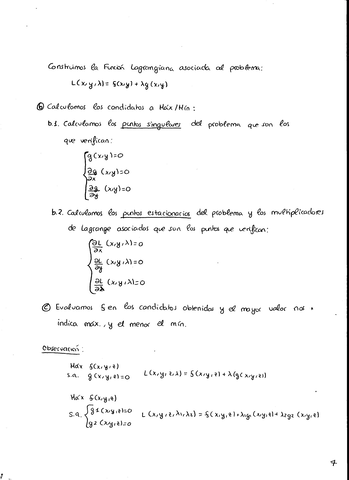 Construimos la Función Lagrangiana asociada al problema:
L(x,y,λ) = f(x,y) + λg(x,y)
ⓑ Calculamos los candidatos a Máx/Mín:
b.1. Calculamos los puntos singulares del problema que son los
que verifican:
g(x,y)=0
∂g/∂x (x,y)=0
∂g/∂y (x,y)=0
b.2. Calculamos los puntos estacionarios del problema y los multiplicadores
de Lagrange asociados que son los puntos que verifican:
∂L/∂x (x,y,λ)=0
∂L/∂y (x,y,λ)=0
∂L/∂λ (x,y,λ)=0
ⓒ Evaluamos f en los candidatos obtenidos y el mayor valor nos
indica máx., y el menor el mín.
Observación:
Máx f(x,y,z)
s.a. g(x,y,z)=0 L(x,y,z,λ) = f(x,y,z) + λ(g(x,y,z))
Máx f(x,y,z)
s.a. g1(x,y,z)=0
g2(x,y,z)=0 L(x,y,z,λ1,λ2) = f(x,y,z)+λ1g1(x,y,z)+λ2g2(x,y,z)
7